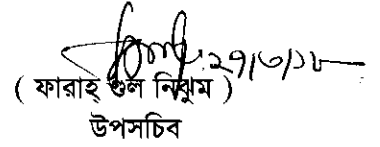 ২৭/৩/১৮
( ফারাহ্ গুল নিঝুম )
উপসচিব